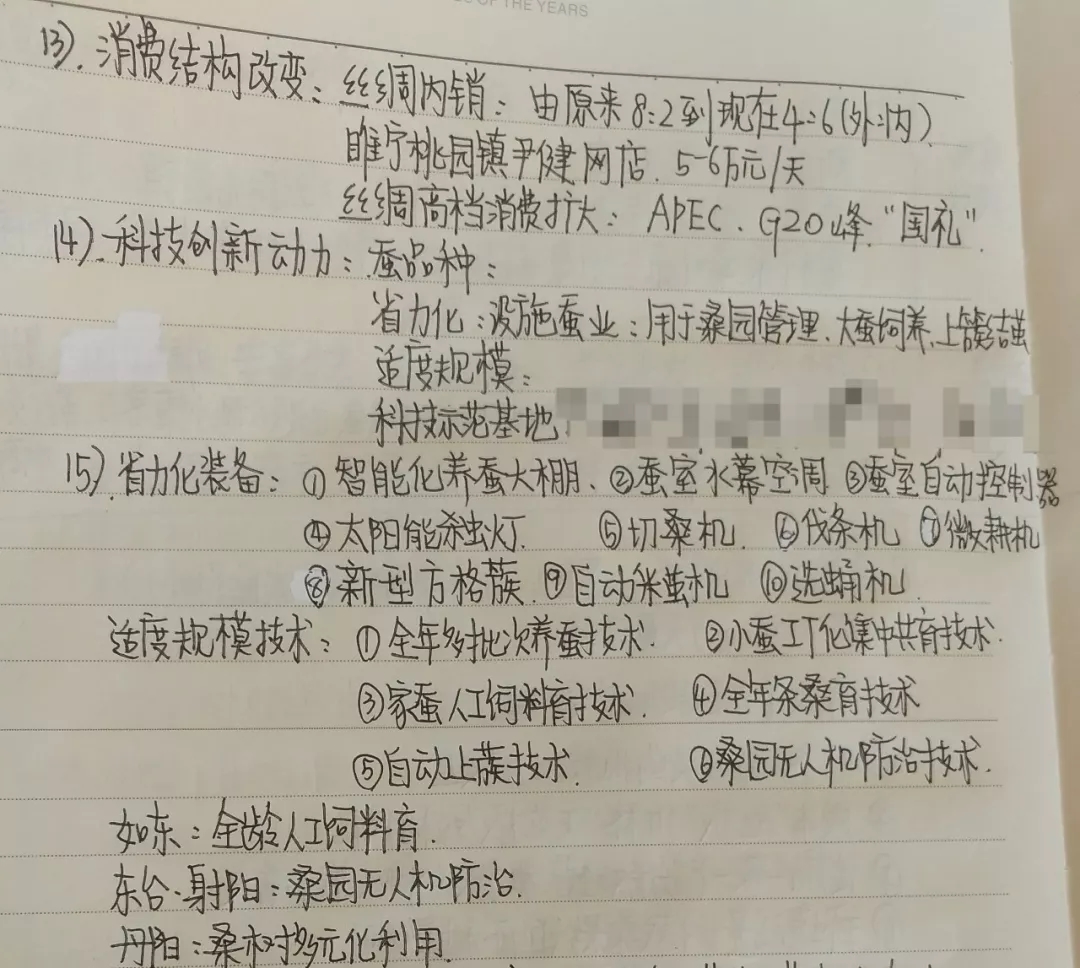 OF THE YEARS
13). 消费结构改变: 丝绸内销: 由原来8:2到现在4:6(外:内)
睢宁桃园镇尹健网店. 5-6万元/天
丝绸高档消费扩大: APEC、G20峰.“国礼”.
14). 科技创新动力: 蚕品种:
省力化: 设施蚕业: 用于桑园管理、大蚕饲养、上簇结茧
适度规模:
科技示范基地.
15). 省力化装备: ①智能化养蚕大棚、②蚕室水幕空调 ③蚕室自动控制器
④太阳能杀虫灯. ⑤切桑机. ⑥伐条机 ⑦微耕机
⑧新型方格蔟. ⑨自动采茧机 ⑩选蛹机.
适度规模技术: ①全年多批次养蚕技术. ②小蚕工厂化集中共育技术.
③家蚕人工饲料育技术. ④全年条桑育技术
⑤自动上蔟技术. ⑥桑园无人机防治技术.
如东: 全龄人工饲料育.
东台·射阳: 桑园无人机防治.
丹阳: 桑树多元化利用.